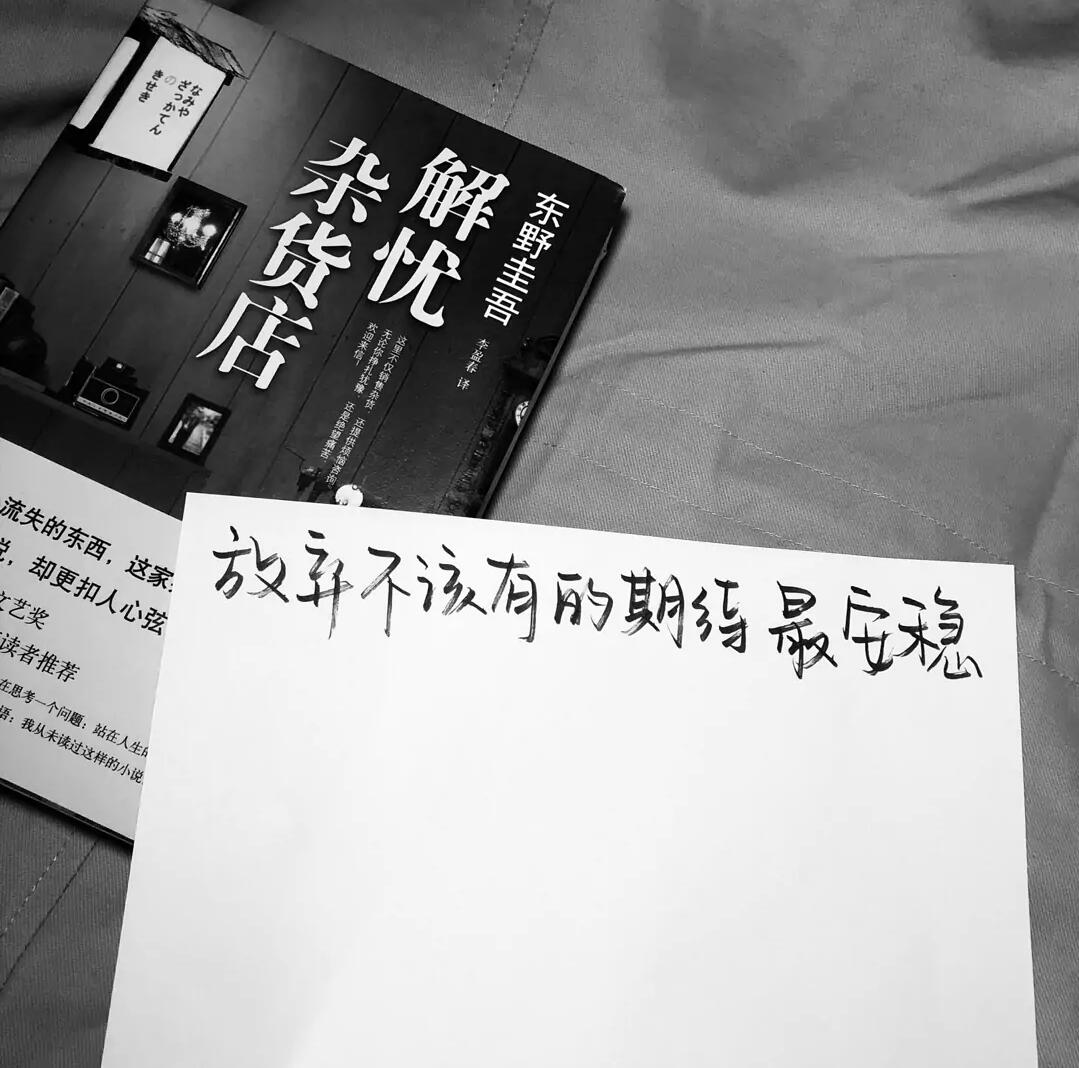 なみや
ざっかてん
の
きせき
东野圭吾
解忧
杂货店
李盈春 译
这里不仅销售杂货，还提供烦恼咨询。
无论你挣扎犹豫，还是绝望痛苦，
欢迎来信！
流失的东西，这家
说，却更扣人心弦
文艺奖
读者推荐
在思考一个问题：站在人生的
语：我从未读过这样的小说
放弃不该有的期待 最安稳